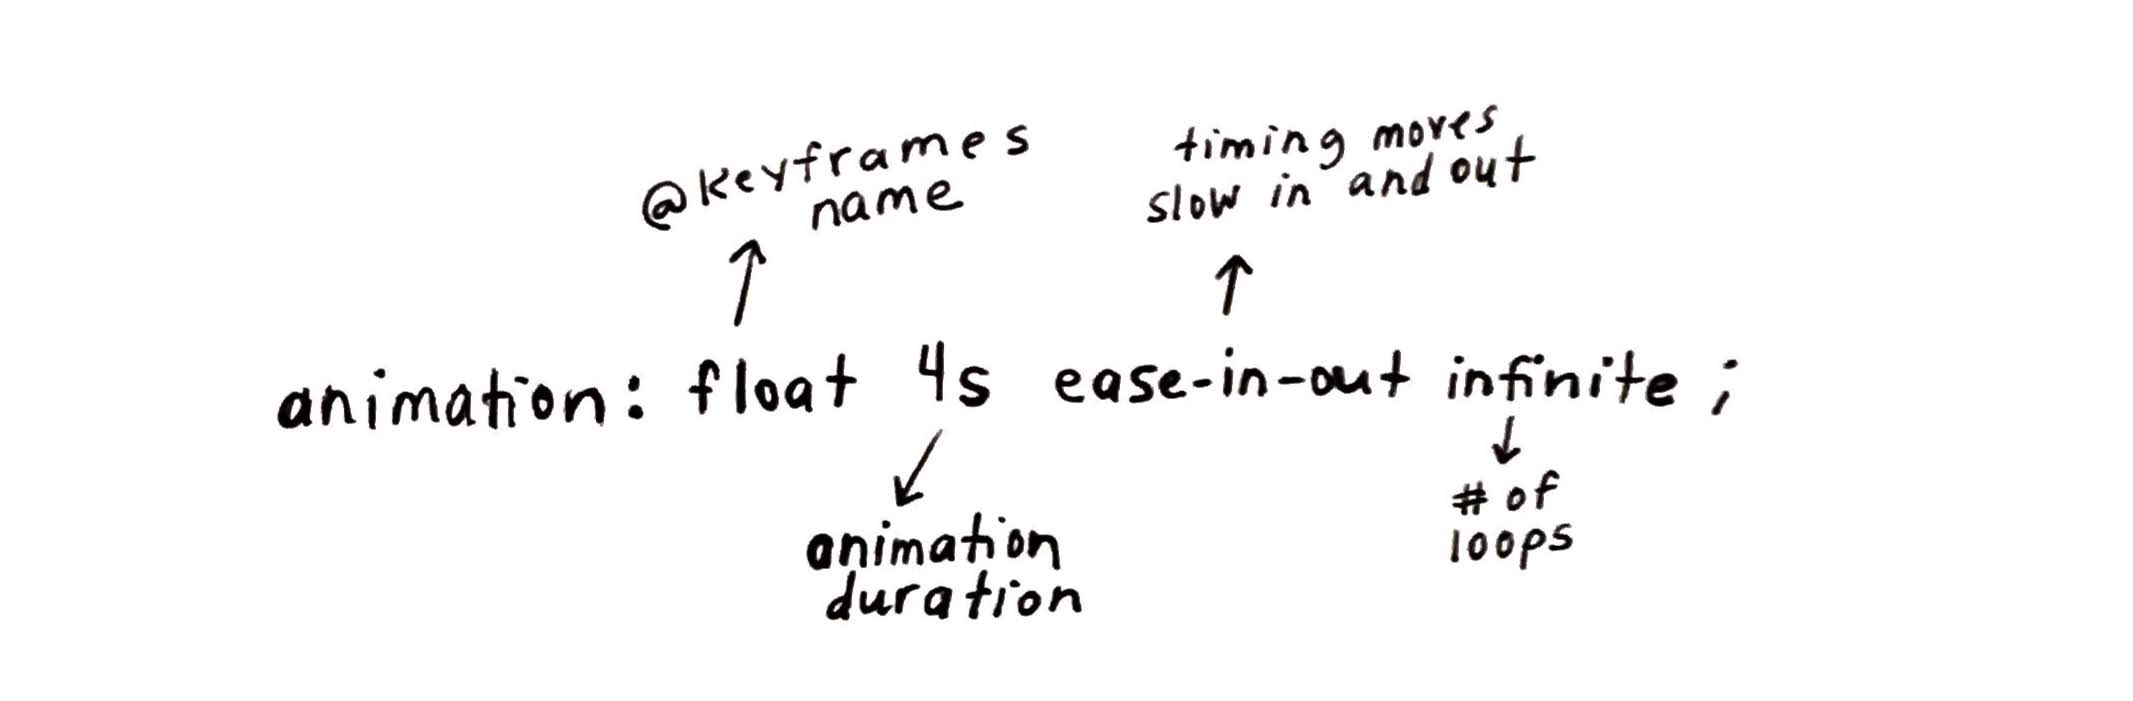 @keyframes
name
timing moves
slow in and out
animation: float 4s ease-in-out infinite;
animation
duration
# of
loops